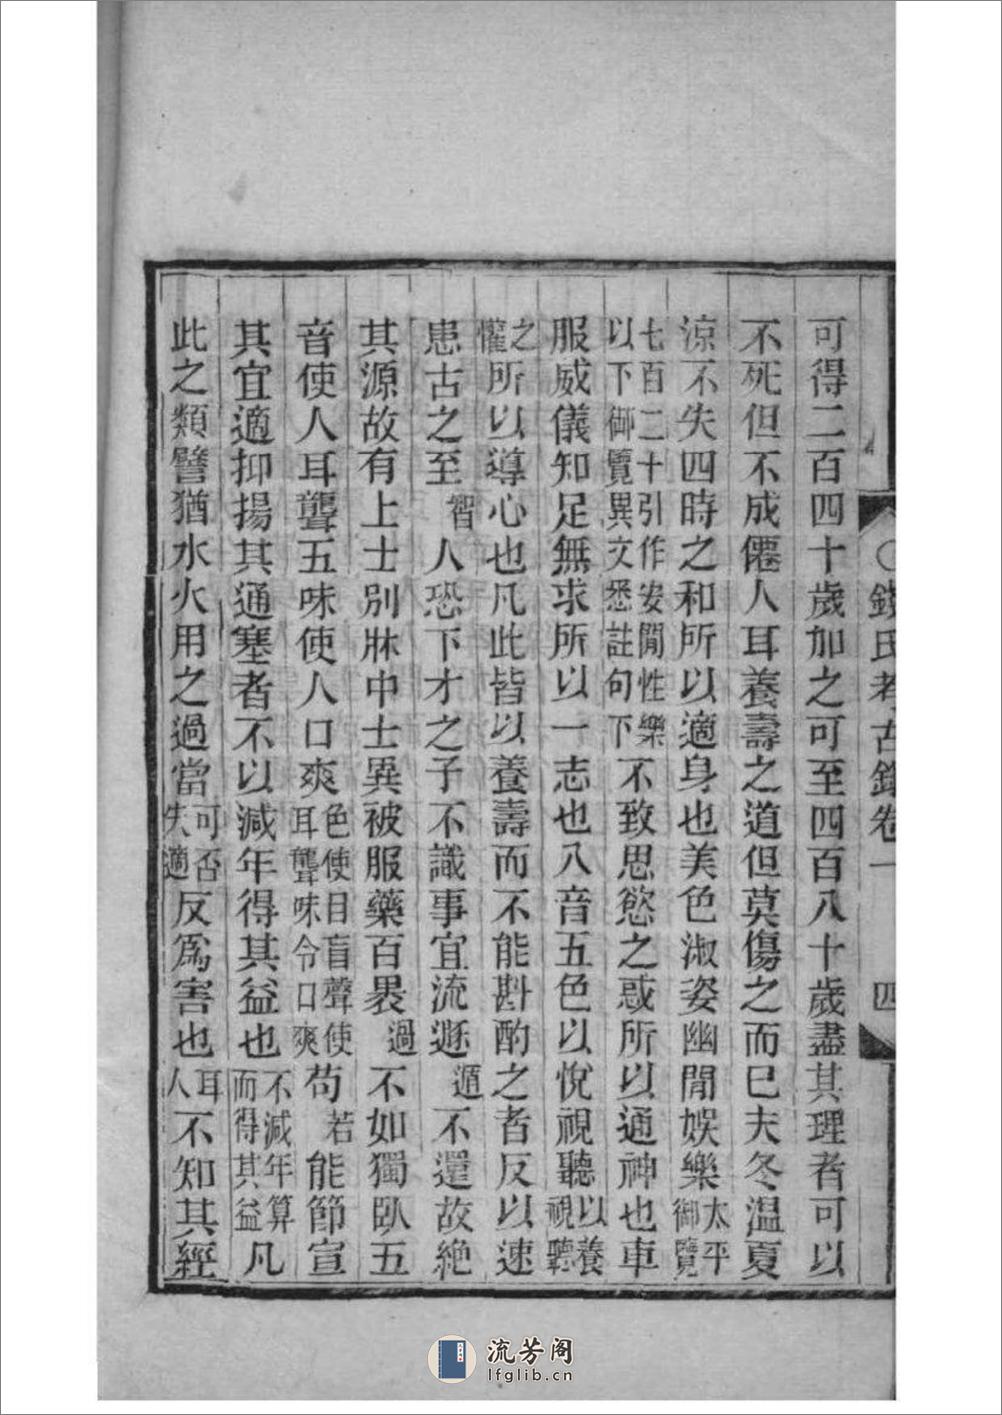 ○錢氏考古錄卷一 四
可得二百四十歲加之可至四百八十歲盡其理者可以
不死但不成僊人耳養壽之道但莫傷之而巳夫冬温夏
涼不失四時之和所以適身也美色淑姿幽閒娛樂太平御覽
七百二十引作安閒性樂以下御覽異文悉註句下不致思慾之惑所以通神也車
服威儀知足無求所以一志也八音五色以悅視聽以養視聽
之懽所以導心也凡此皆以養壽而不能斟酌之者反以速
患古之至智人恐下才之子不識事宜流遯遁不還故絶
其源故有上士別牀中士異被服藥百裹過不如獨臥五
音使人耳聾五味使人口爽色使目盲聲使耳聾味令口爽苟若能節宣
其宜適抑揚其通塞者不以減年得其益也不減年算而得其益凡
此之類譬猶水火用之過當可否失適反爲害也耳人不知其經
流芳阁
lfglib.cn